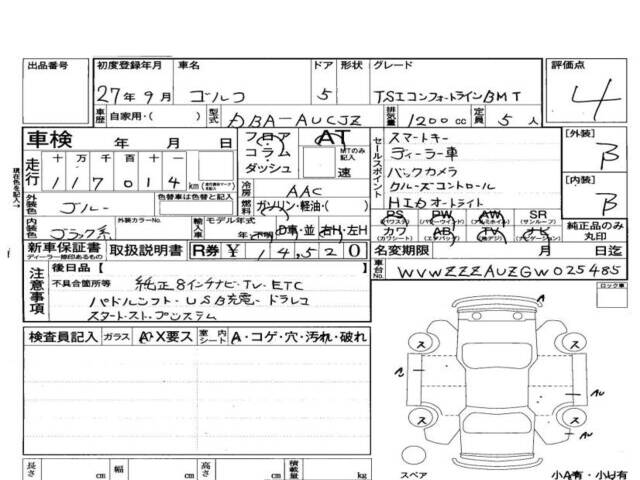 出品番号 初度登録年月 車名 ドア 形状 グレード 評価点
27年9月 ゴルフ 5 TSIコンフォートラインBMT 4
車歴 自家用・( ) 型式 DBA-AUCJZ 排気量 1200cc 定員 5人
車検 年 月 日 フロア AT セールスポイント スマートキー [外装]
現在色を記入→ 走行 十 万 千 百 十 コラム MTのみ記入 ディーラー車 B
117014 km ダッシュ 速 バックカメラ
冷房 AAC クルーズコントロール [内装]
外装色 ブルー 色替車は色替と記入 燃料 ガソリン・軽油・( ) HIDオートライト B
内装色 ブラック系 外装カラーNo. 輸入車 モデル年式 年・不明 D車・並 右H・左H PS PW AW SR 純正品のみ丸印
(パワステ) (パワーウインド) (アルミホイール) (サンルーフ)
カワ AB TV ナビ
(カワシート) (エアバッグ) (地デジ) (ナビゲーション)
新車保証書 取扱説明書 R券 ¥ 14,520 名変期限 月 日迄
ディーラー捺印あるもの
注意事項 後日品 [ ] 車台No. WVWZZZAUZGW025485
不具合箇所等 純正8インチナビ・TV・ETC ロック車
パドルシフト・USB充電・ドラレコ
スタートストップシステム
検査員記入 ガラス A・X要ス 室内シート A・コゲ・穴・汚れ・破れ
A
ス ス
ス ス
スペア 小A有・小U有
長さ cm 幅 cm 高さ cm 積載量 kg